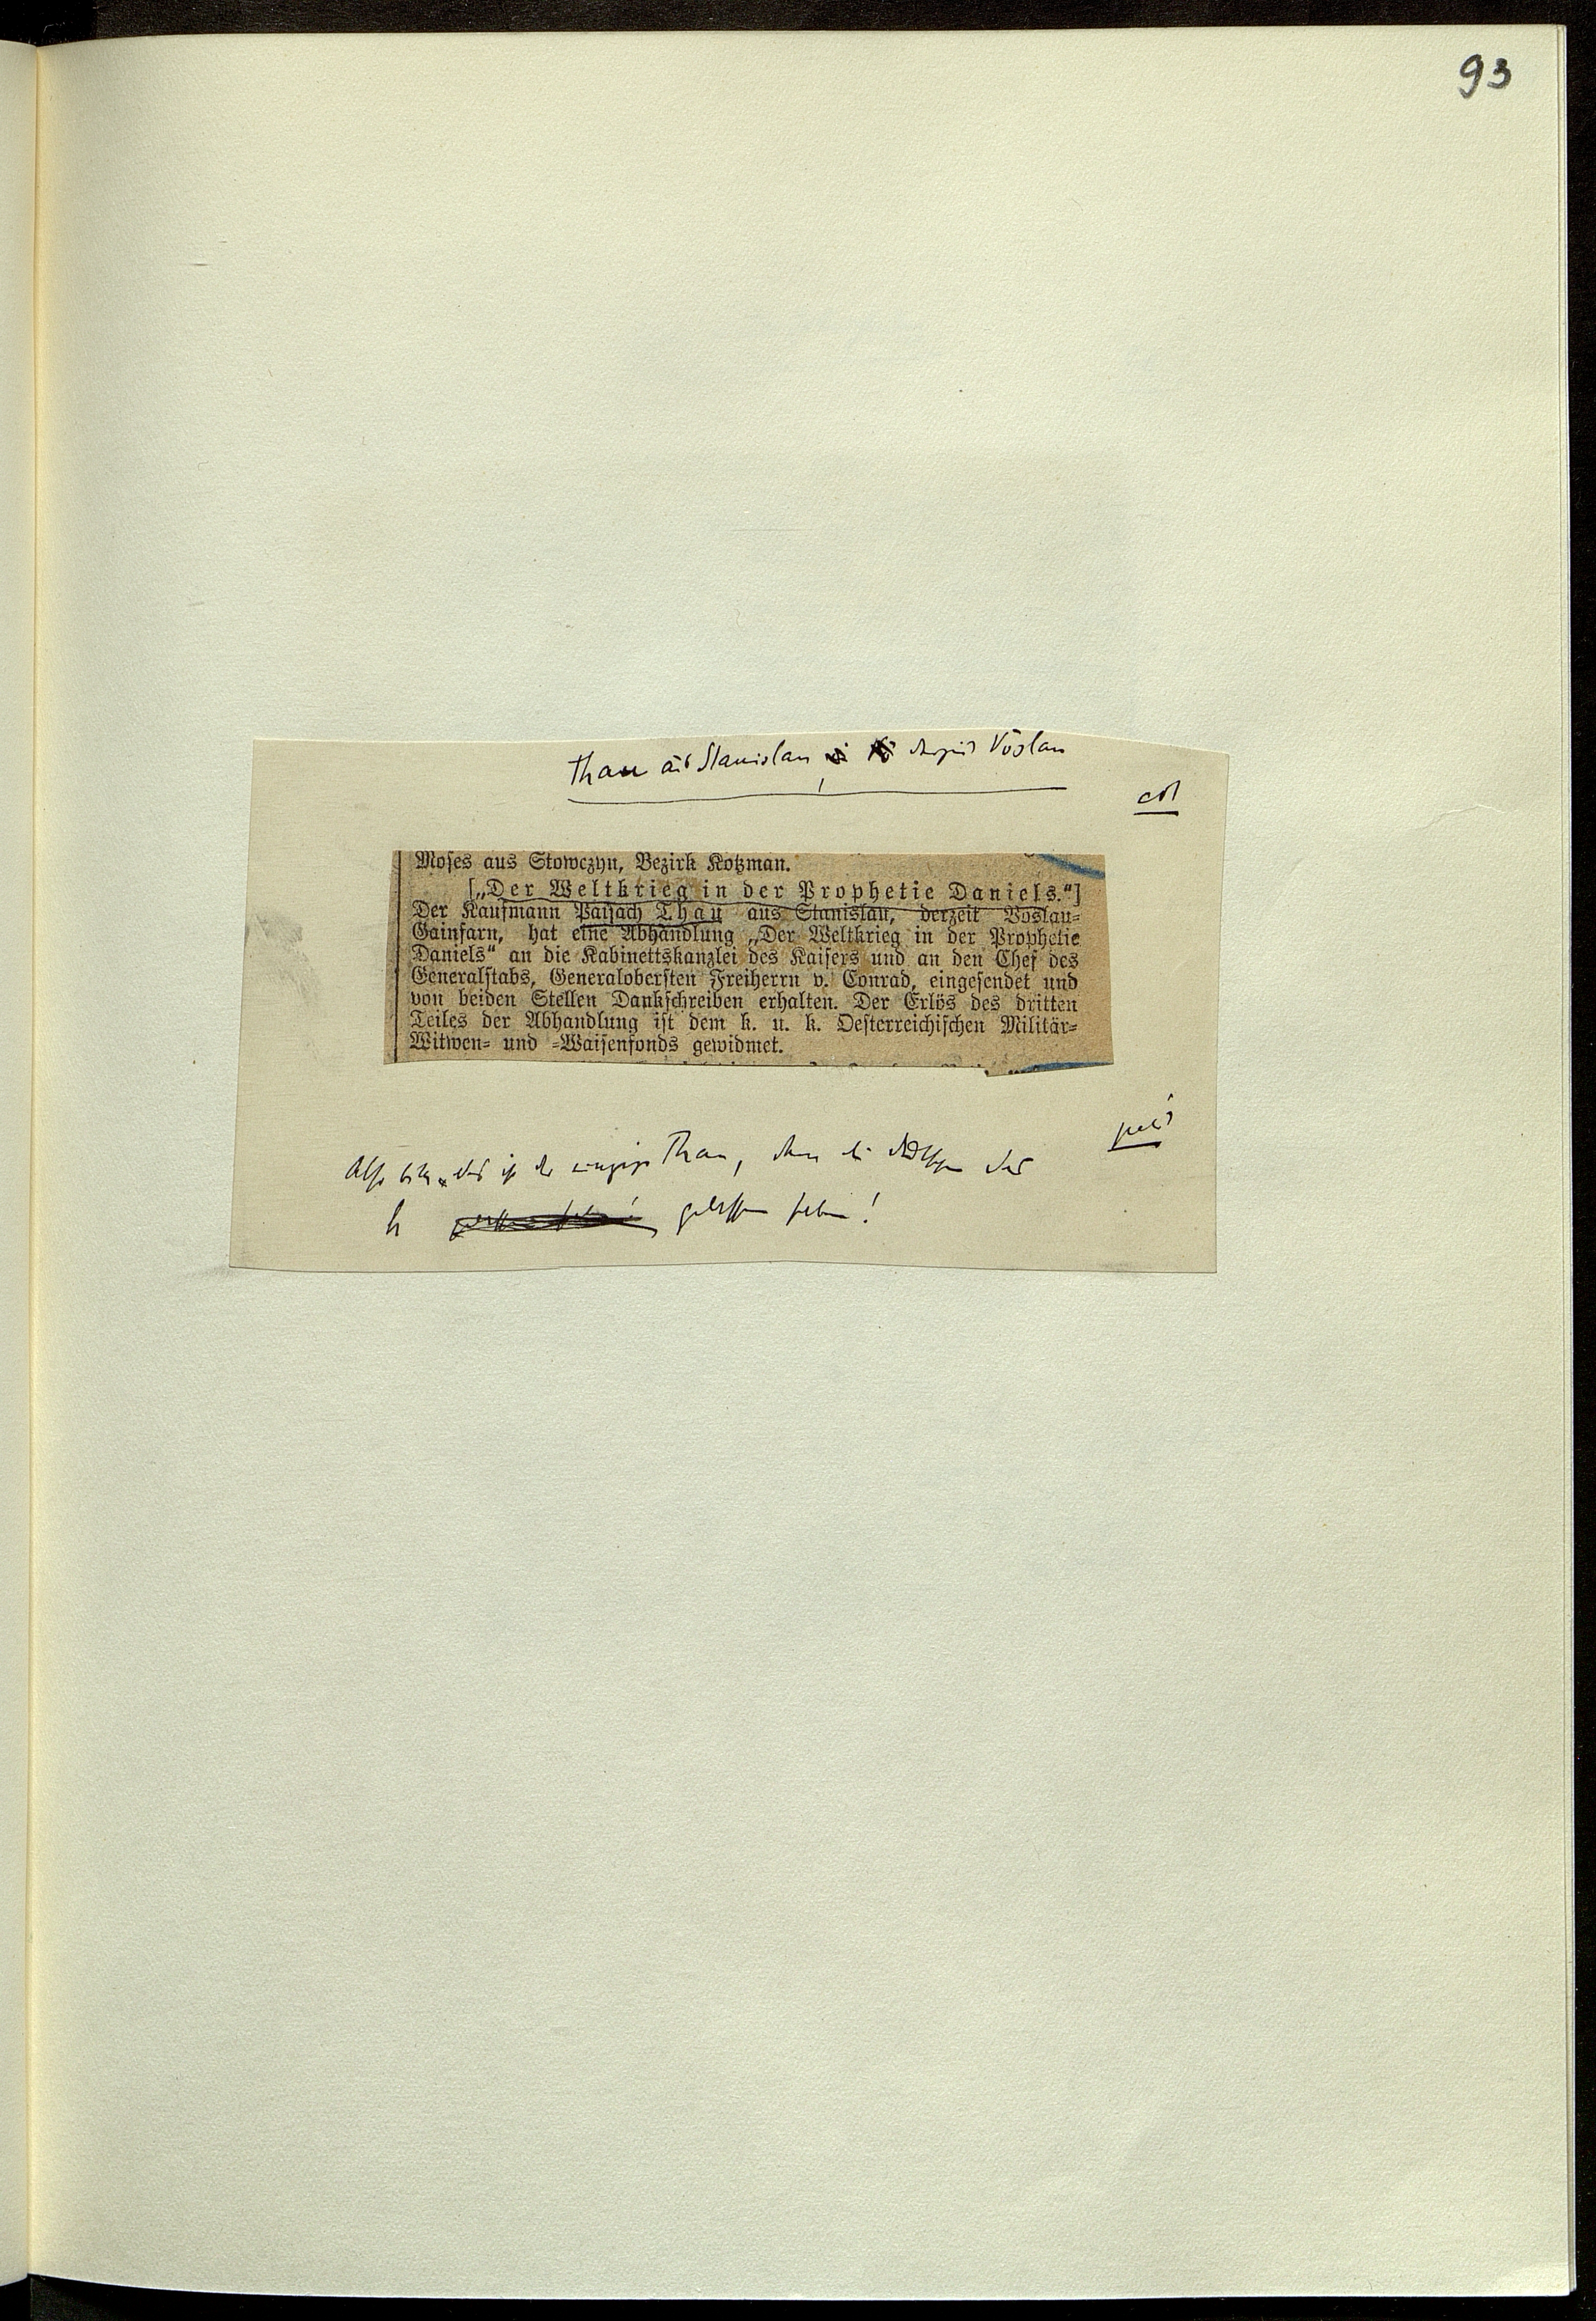 93
Thau aus Stanislau, derzeit Vöslau
Moses aus Stowczyn, Bezirk Kotzman.
[„Der Weltkrieg in der Prophetie Daniels.“]
Der Kaufmann Paisach Thau aus Stanislau, derzeit Vöslau-
Gainfarn, hat eine Abhandlung „Der Weltkrieg in der Prophetie
Daniels“ an die Kabinettskanzlei des Kaisers und an den Chef des
Generalstabs, Generalobersten Freiherrn v. Conrad, eingesendet und
von beiden Stellen Dankschreiben erhalten. Der Erlös des dritten
Teiles der Abhandlung ist dem k. u. k. Oesterreichischen Militär-
Witwen- und -Waisenfonds gewidmet.
Also das ist der einzige Thau, den die
gelassen haben!